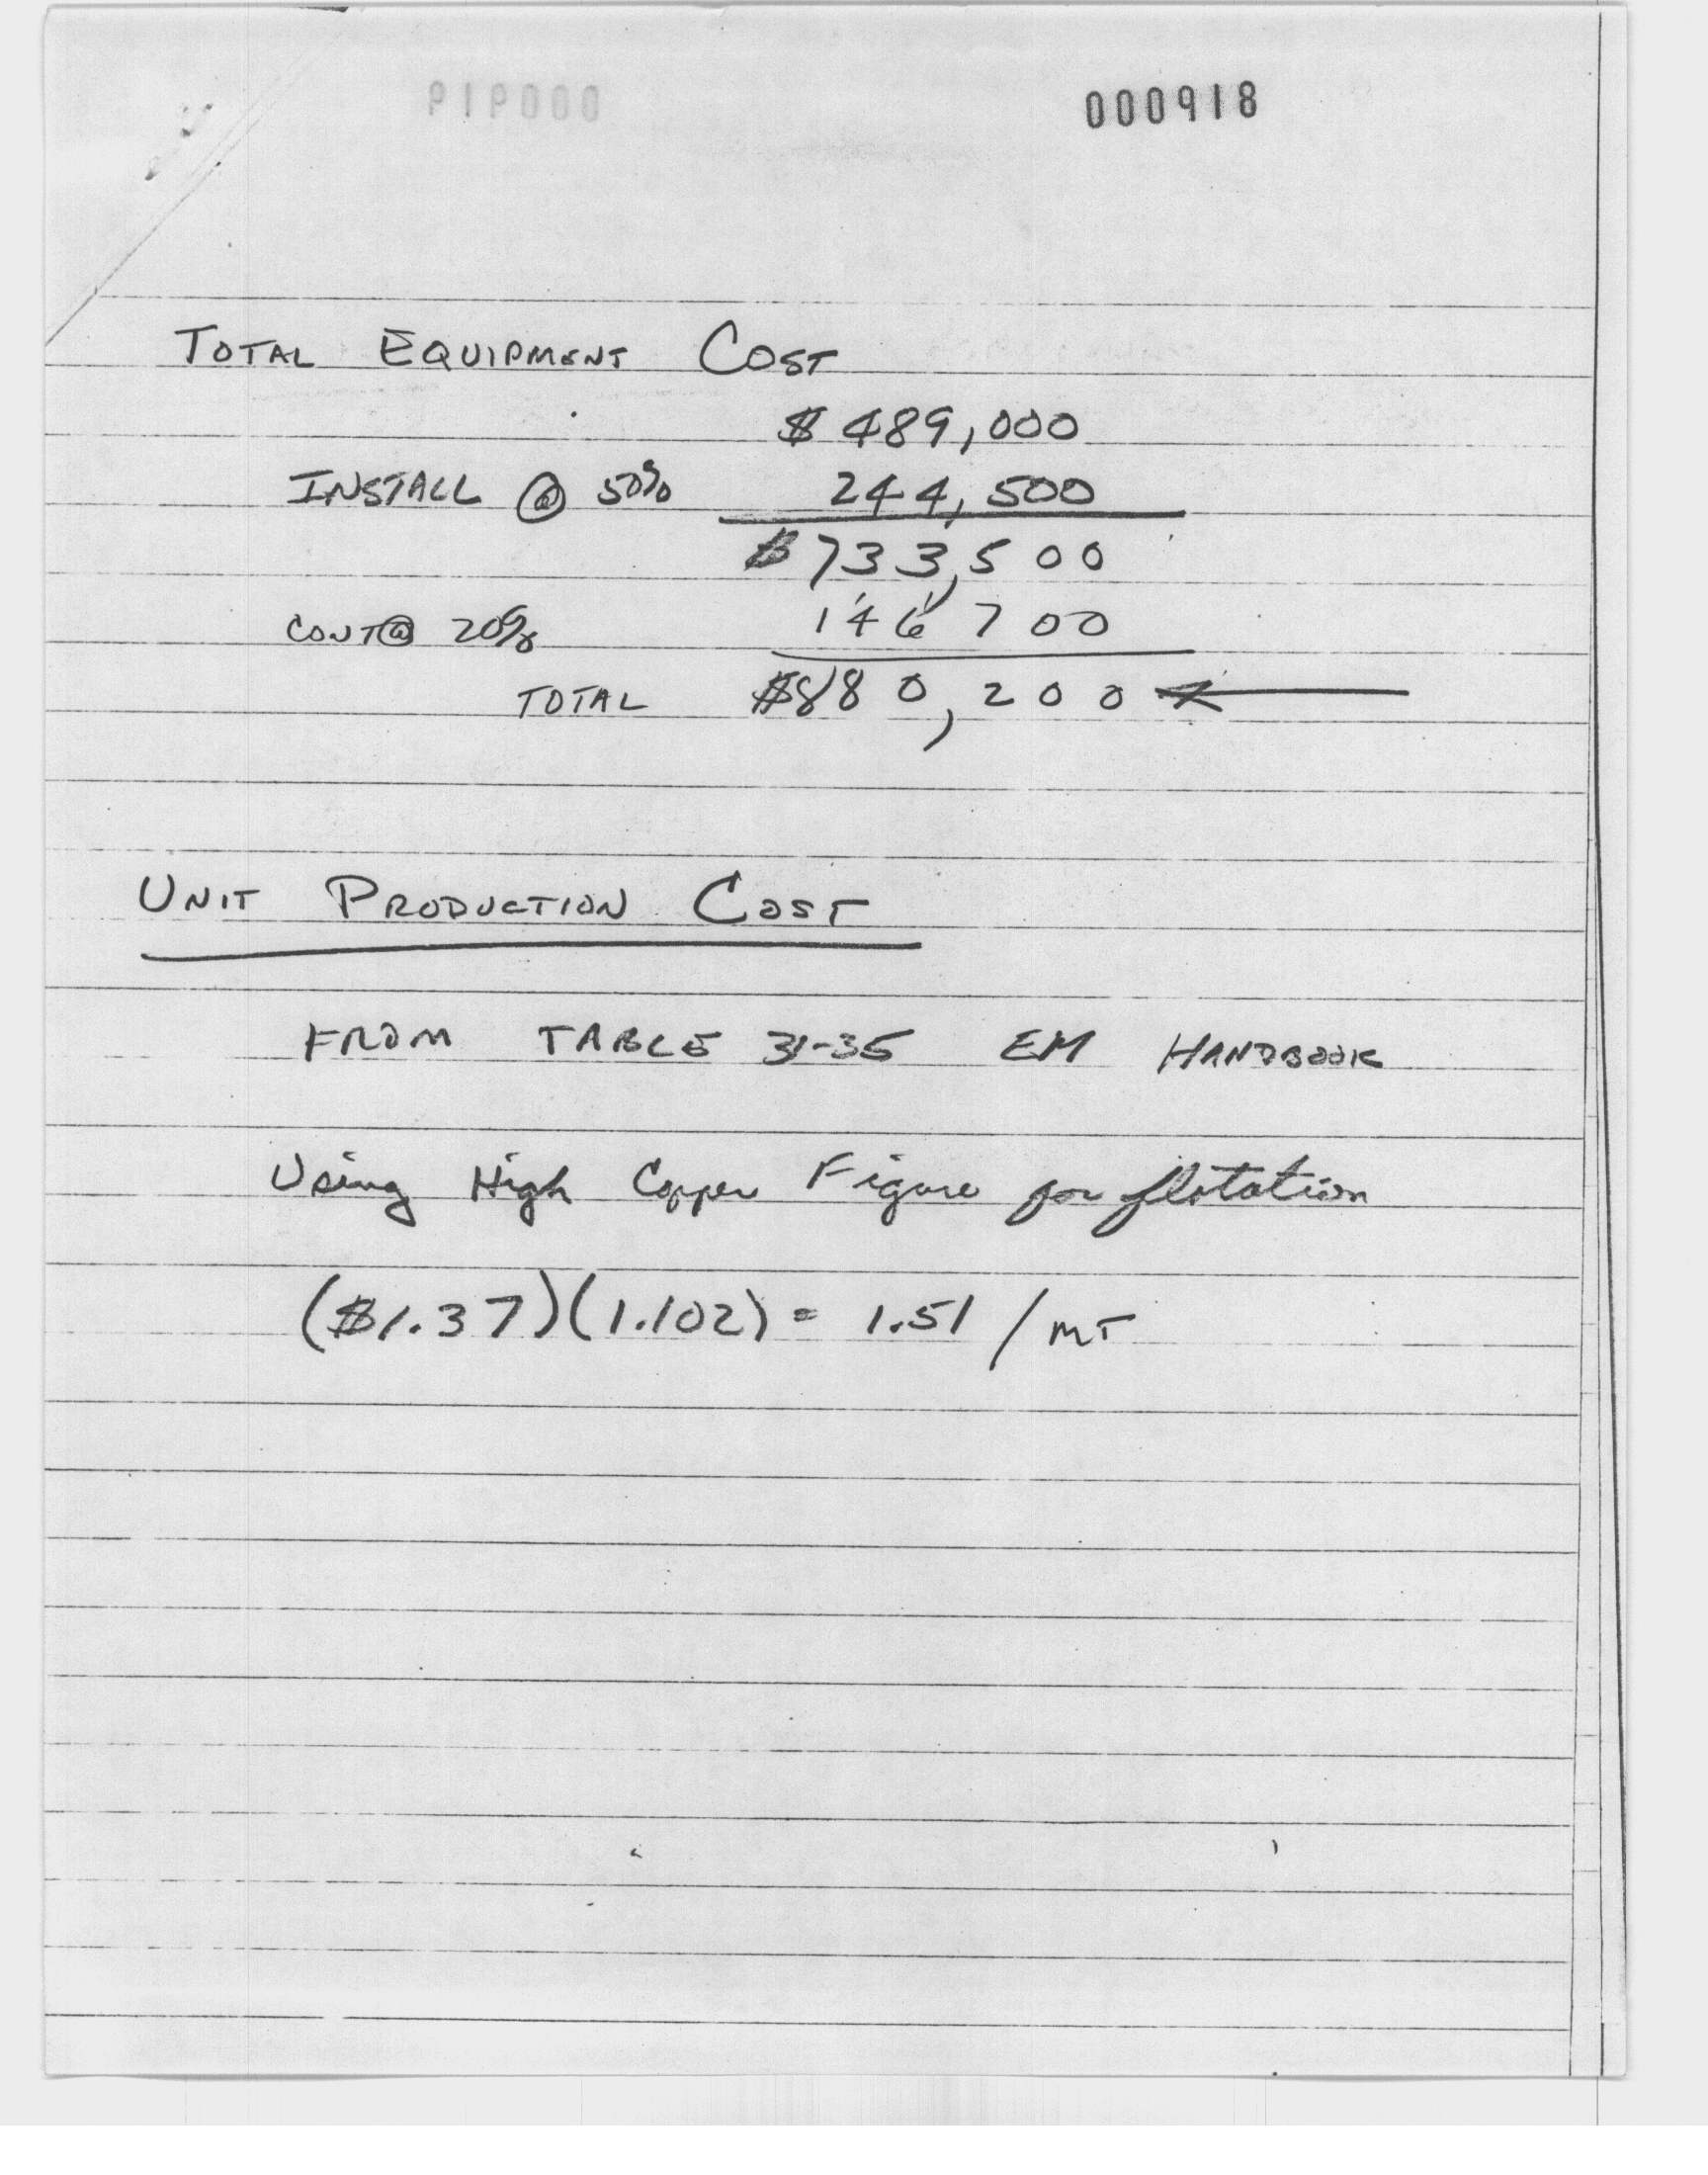 000918
TOTAL EQUIPMENT COST
$ 489,000
INSTALL @ 50% 244,500
$733,500
CONT@ 20% 146,700
TOTAL $880,200
UNIT PRODUCTION COST
FROM TABLE 31-35 EM HANDBOOK
Using High Copper Figure for flotation
($1.37)(1.102) = 1.51 / MT